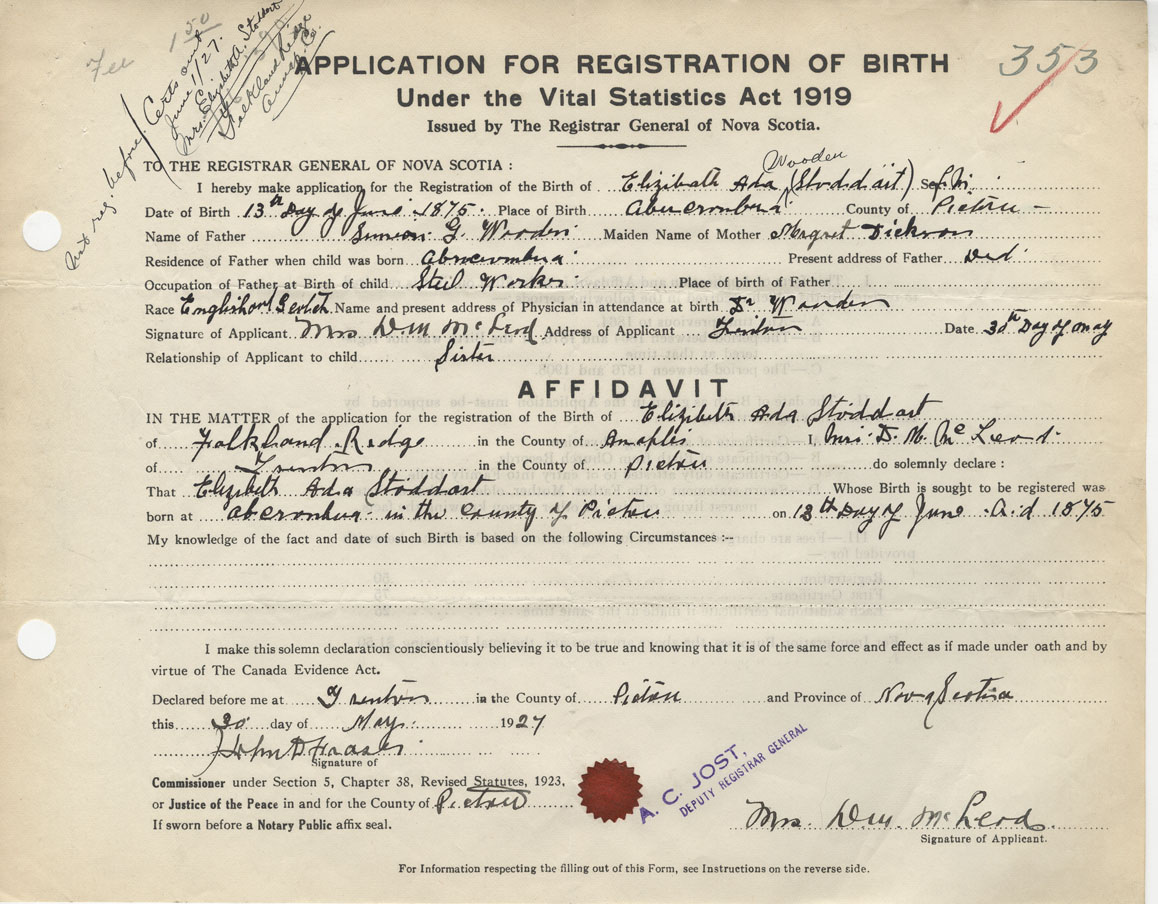 Fee 1 50
Certs out
June 1/27.
Mrs. Elizabeth A. Stoddart
Falkland Ridge
Annap. Co.
not reg. before
353
APPLICATION FOR REGISTRATION OF BIRTH
Under the Vital Statistics Act 1919
Issued by The Registrar General of Nova Scotia.
TO THE REGISTRAR GENERAL OF NOVA SCOTIA :
Wooden
I hereby make application for the Registration of the Birth of Elizibath Ada (Stoddait) Sex
Date of Birth 13th Day of June 1875. Place of Birth Abercrombera County of Pictou -
Name of Father Simeon G. Wooden Maiden Name of Mother Margret Dickson
Residence of Father when child was born Present address of Father Ded
Occupation of Father at Birth of child Steel Worker Place of birth of Father
Race English or Scotch Name and present address of Physician in attendance at birth Dr
Signature of Applicant Mrs D M McLeod Address of Applicant Trenton Date 30th Day of May
Relationship of Applicant to child Sister
AFFIDAVIT
IN THE MATTER of the application for the registration of the Birth of Elizibeth Ada Stoddart
of Falkland Ridge in the County of Anaplis I, Mrs. D. M. McLeod.
of Trenton in the County of Pictou do solemnly declare :
That Elizibeth Ada Stoddart Whose Birth is sought to be registered was
born at in the County of Pictou on 13th Day of June A.d 1875
My knowledge of the fact and date of such Birth is based on the following Circumstances :--
I make this solemn declaration conscientiously believing it to be true and knowing that it is of the same force and effect as if made under oath and by
virtue of The Canada Evidence Act.
Declared before me at Trenton in the County of Pictou and Province of Nova Scotia
this 30 day of May 1927
John D Fraser
Signature of
Commissioner under Section 5, Chapter 38, Revised Statutes, 1923,
or Justice of the Peace in and for the County of Pictou
If sworn before a Notary Public affix seal.
A. C. JOST,
DEPUTY REGISTRAR GENERAL
Mrs. D M. McLeod.
Signature of Applicant.
For Information respecting the filling out of this Form, see Instructions on the reverse side.